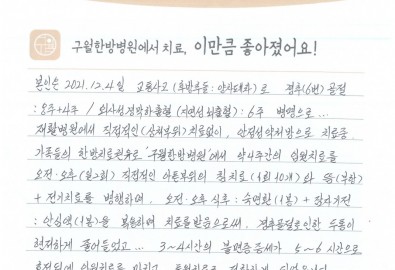 구월한방병원에서 치료, 이만큼 좋아졌어요!
본인은 2021.12.4일 교통사고 (후방추돌: 안와대파)로 경추(6번) 골절
: 8주+4주 / 외상성경막하출혈 (지연성 뇌출혈) : 6주 병명으로...
재활병원에서 직접적인 (상처부위) 치료없이, 안정성약처방으로 치료중
가족들의 한방치료권유로 '구월한방병원'에서 약4주간의 입원치료를
오전·오후(일2회) 직접적인 아픈부위의 침치료 (1회10개)와 뜸(부항)
+ 전기치료를 병행하며, 오전·오후 식후 : 숙면환(1봉) + 잠자기전
: 안심액(1봉)을 복용하며 치료를 받음으로써, 경추골절로 인한 두통이
현저하게 줄어들었고... 3~4시간의 불면증증세가 5~6시간으로